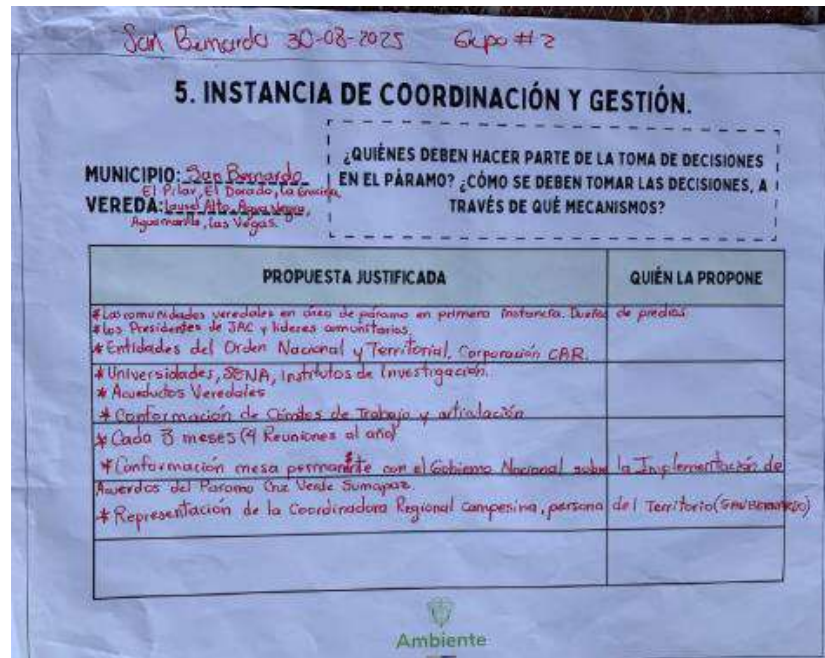 San Bernardo 30-08-2025 Grupo #2
5. INSTANCIA DE COORDINACIÓN Y GESTIÓN.
MUNICIPIO: San Bernardo
El Pilar, El Dorado, La Graciela,
VEREDA: Laurel Alto, Agua Negra,
Aguamarilla, Las Vegas.
¿QUIÉNES DEBEN HACER PARTE DE LA TOMA DE DECISIONES
EN EL PÁRAMO? ¿CÓMO SE DEBEN TOMAR LAS DECISIONES, A
TRAVÉS DE QUÉ MECANISMOS?
PROPUESTA JUSTIFICADA QUIÉN LA PROPONE
*Las comunidades veredales en área de páramo en primera instancia. Dueños de predios.
*Los Presidentes de JAC y líderes comunitarios.
*Entidades del Orden Nacional y Territorial, Corporación CAR.
*Universidades, SENA, Institutos de Investigación.
*Acueductos Veredales
*Conformación de Comites de Trabajo y articulación
*Cada 3 meses (4 Reuniones al año)
*Conformación mesa permanente con el Gobierno Nacional sobre la Implementación de
Acuerdos del Paramo Cruz Verde Sumapaz.
*Representación de la Coordinadora Regional campesina, persona del Territorio (SAN BERNARDO)
Ambiente